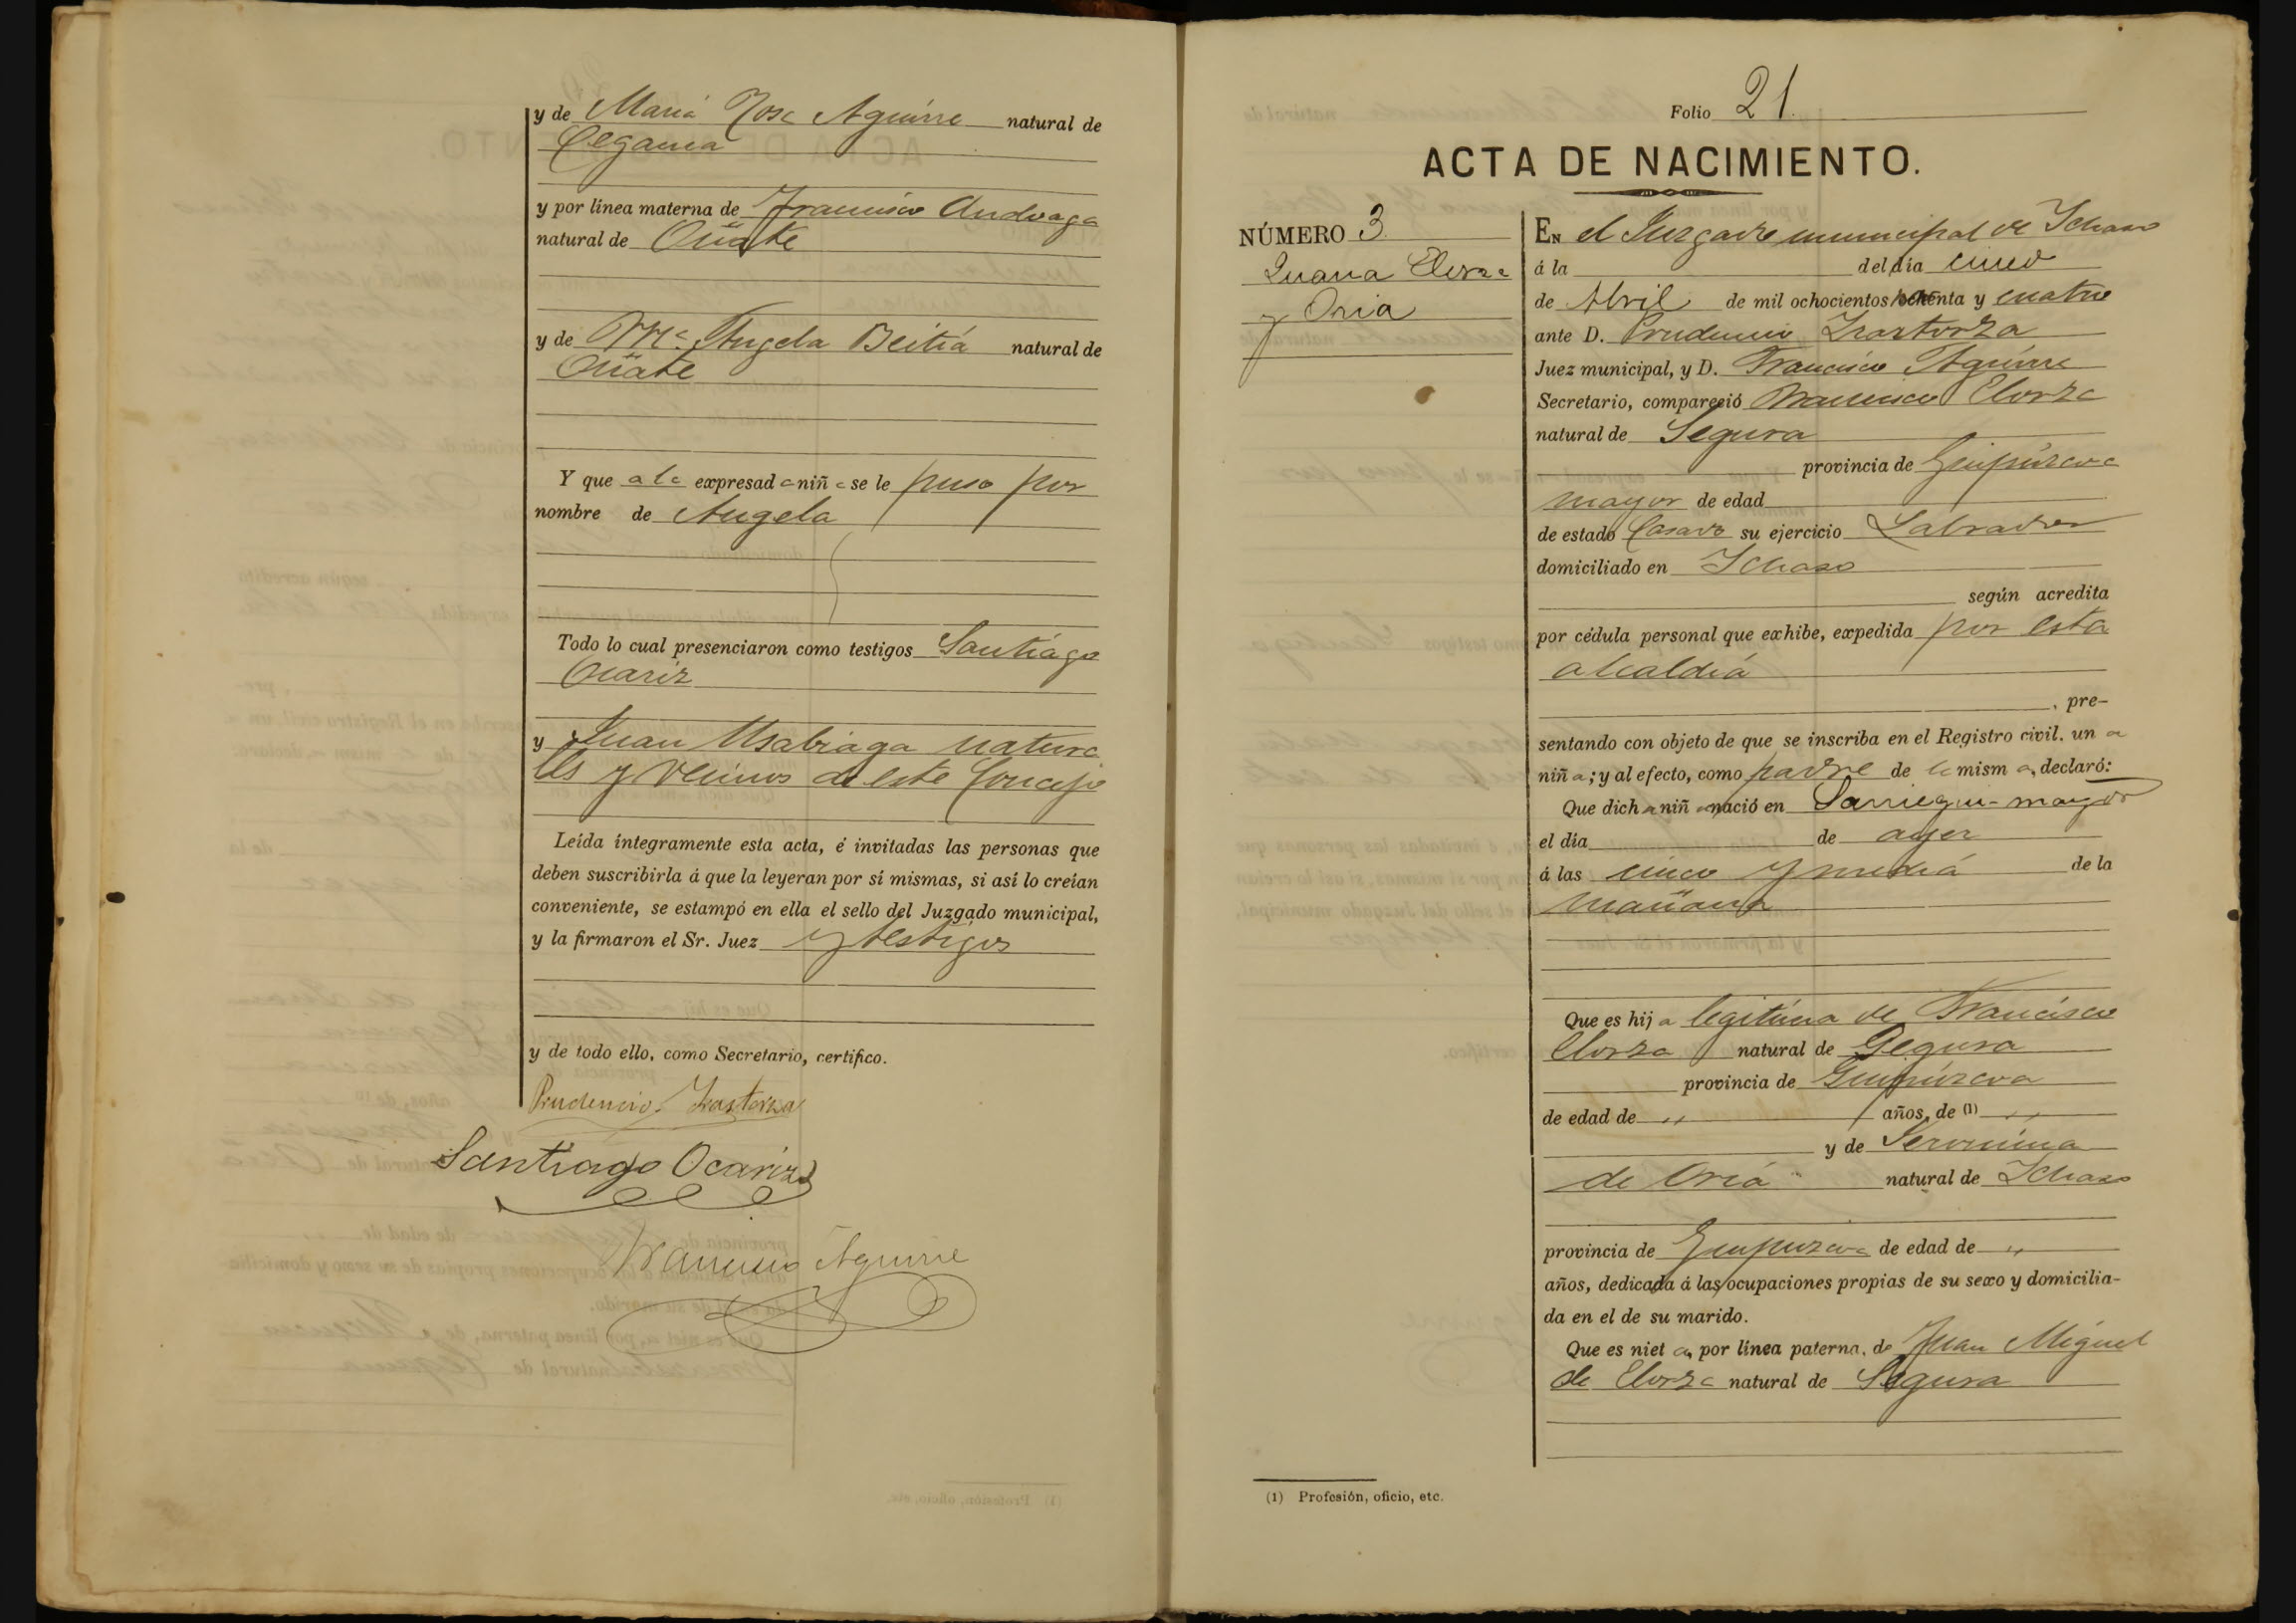 y de Maria Rosa Aguirre natural de
Cegama
y por línea materna de Francisco Andoaga
natural de Oñate
y de Mª Angela Beitia natural de
Oñate
Y que a la expresada niña se le puso por
nombre de Angela
Todo lo cual presenciaron como testigos Santiago
Ocariz
y Juan Usabiaga natura
les y vecinos de este Concejo
Leída íntegramente esta acta, é invitadas las personas que
deben suscribirla á que la leyeran por sí mismas, si así lo creían
conveniente, se estampó en ella el sello del Juzgado municipal,
y la firmaron el Sr. Juez y testigos
y de todo ello, como Secretario, certifico.
Prudencio Irastorza
Santiago Ocariz
Francisco Aguirre
Folio 21.
ACTA DE NACIMIENTO.
NÚMERO 3.
Juana Elorza
y Oria
En el Juzgado municipal de Ichaso
á la del día cinco
de Abril de mil ochocientos noventa y cuatro
ante D. Prudencio Irastorza
Juez municipal, y D. Francisco Aguirre
Secretario, compareció Francisco Elorza
natural de Segura
provincia de Guipúzcoa
mayor de edad
de estado Casado su ejercicio Labrador
domiciliado en Ichaso
según acredita
por cédula personal que exhibe, expedida por esta
alcaldía
, pre-
sentando con objeto de que se inscriba en el Registro civil, un a
niña; y al efecto, como padre de la misma, declaró:
Que dicha niña nació en Sarriegui-mayor
el día de ayer
á las cinco y media de la
mañana
Que es hija legítima de Francisco
Elorza natural de Segura
provincia de Guipúzcoa
de edad de „ años, de (1) „
y de Geronima
de Oria natural de Ichaso
provincia de Guipuzcoa de edad de „
años, dedicada á las ocupaciones propias de su sexo y domicilia-
da en el de su marido.
Que es nieta, por línea paterna, de Juan Miguel
de Elorza natural de Segura
(1) Profesión, oficio, etc.